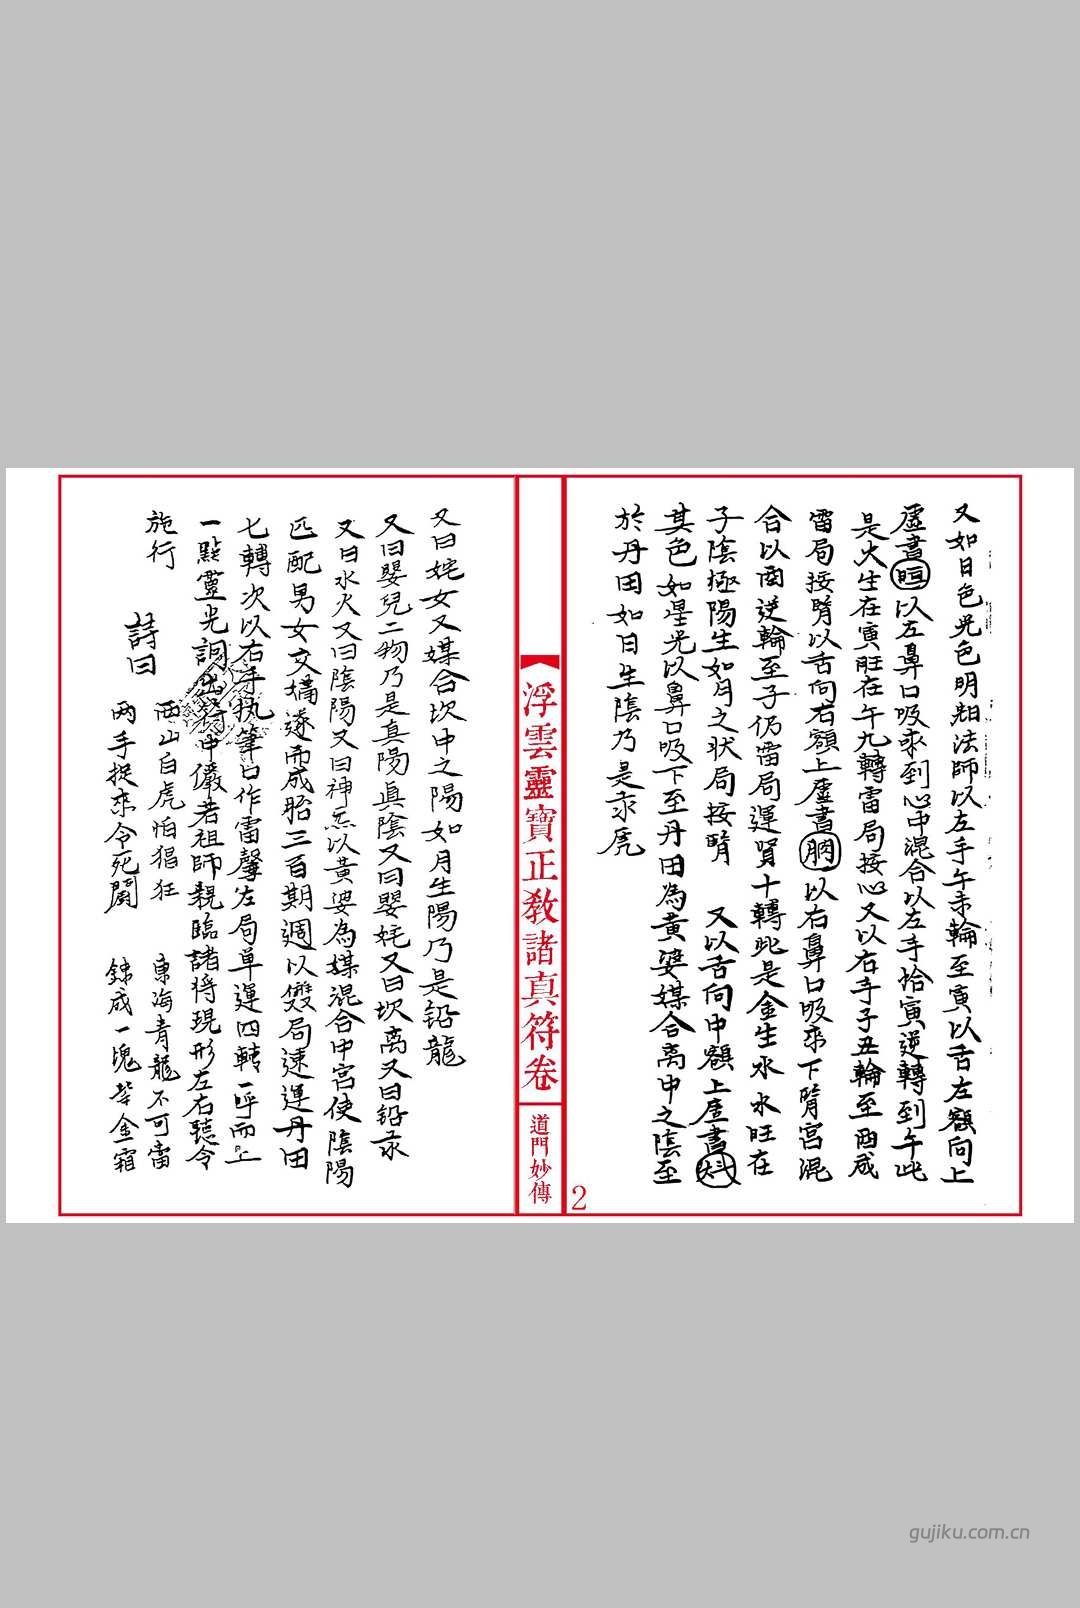 又如日色光色明朗法師以左手午未輪至寅以舌左額向上
虛書 以左鼻口吸求到心中混合以左手恰寅逆轉到午此
是火生在寅旺在午九轉雷局接心又以右手子丑輪至酉成
雷局接腎以舌向右額上虛書 以右鼻口吸來下腎宮混
合以酉逆輪至子仍雷局運腎十轉此是金生水水旺在
子陰極陽生如月之狀局接腎 又以舌向中額上虛書
其色如星光以鼻口吸下至丹田為黃婆媒合离中之陰至
於丹田如日生陰乃是汞虎
浮雲靈寶正教諸真符卷
道門妙傳
2
又曰姹女又媒合坎中之陽如月生陽乃是鉛龍
又曰嬰兒二物乃是真陽真陰又曰嬰姹又曰坎离又曰鉛汞
又曰水火又曰陰陽又曰神炁以黃婆為媒混合中宮使陰陽
匹配男女交媾遂而成胎三百期週以雙局速運丹田
七轉次以右手執筆口作雷聲左局單運四轉一呼而上
一點靈光 出符中儼若祖師親臨諸將現形左右聽令
施行
詩曰
西山白虎怕猖狂 東海青龍不可當
两手捉來令死鬪 鍊成一塊紫金霜
gujiku.com.cn